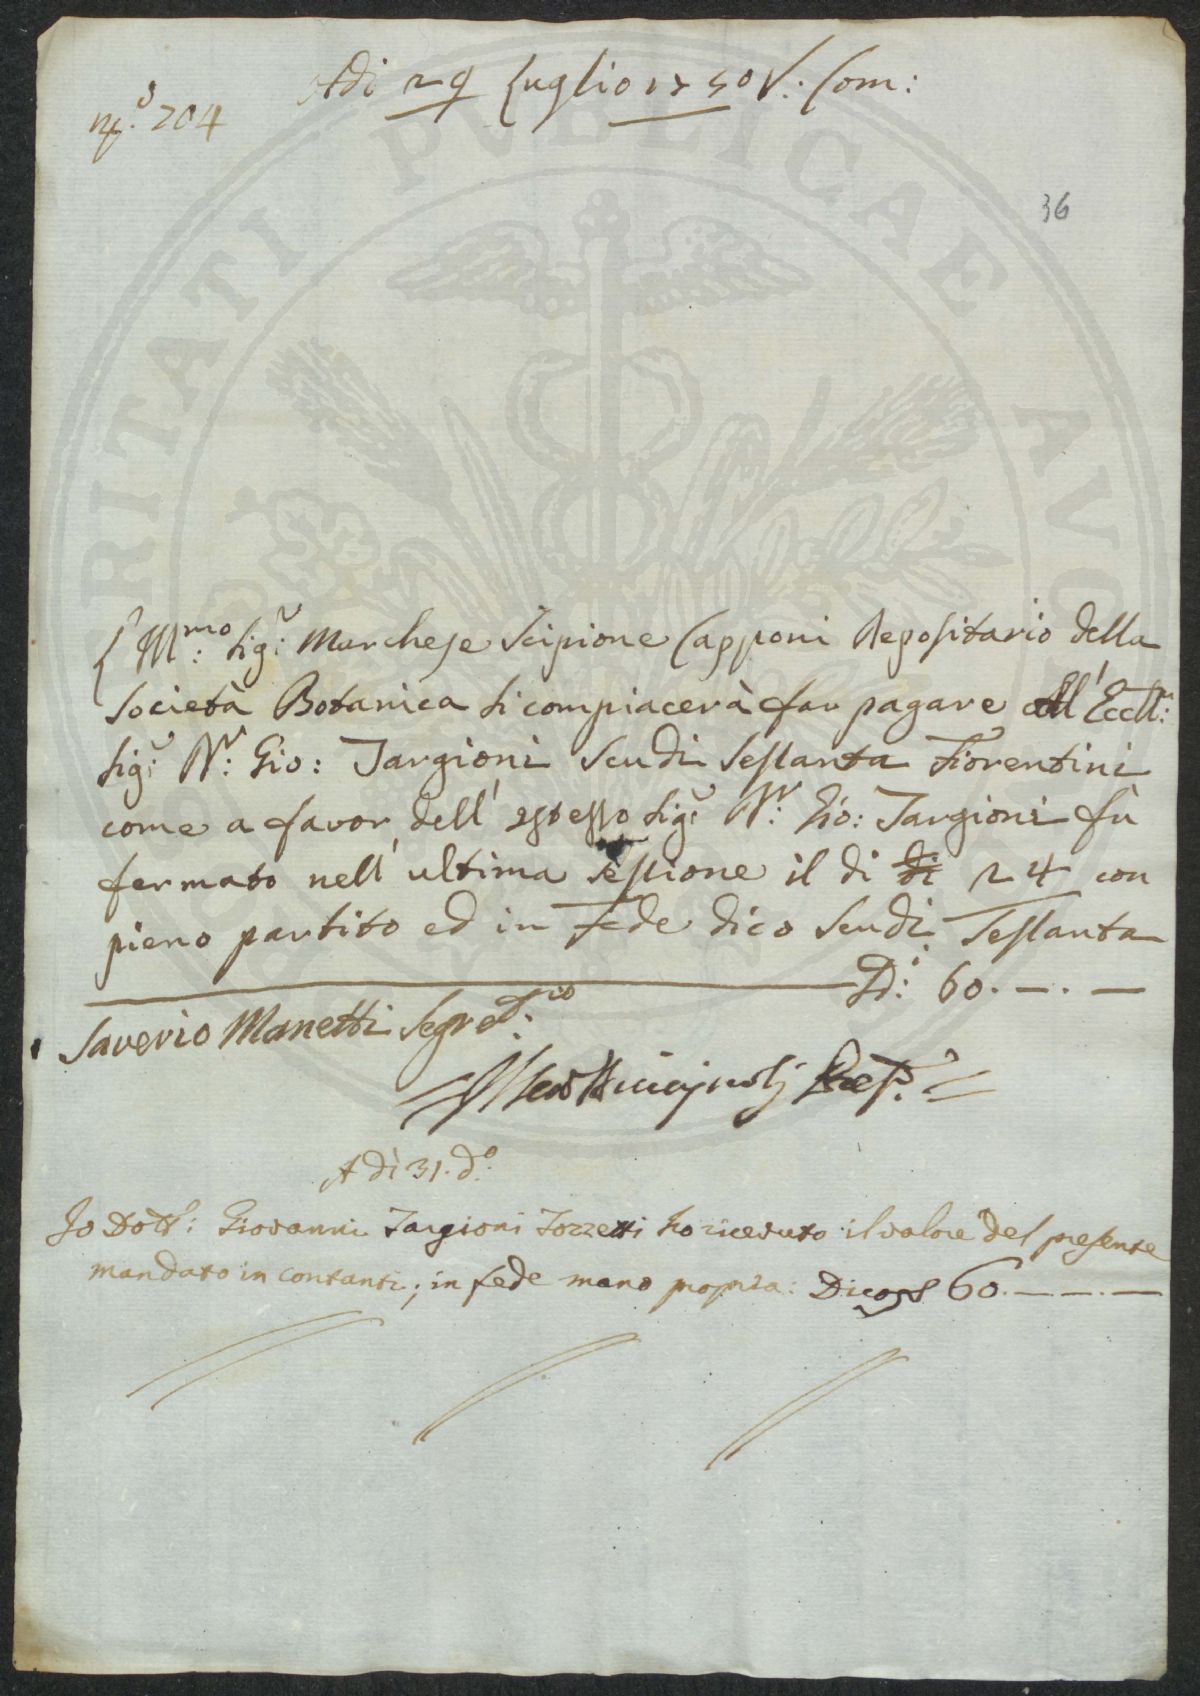 Adi 29 Luglio 1750 V. Com:
n.° 204
36
L'Ill.mo Sig.r Marchese Scipione Capponi Depositario della
Società Botanica si compiacerà far pagare all' Eccll.
Sig.r D.r: Gio: Targioni Scudi Sessanta Fiorentini
come a favor dell' istesso Sig.r D.r: Gio: Targioni fù
fermato nell' ultima sessione il di di 24 con
pieno partito ed in fede dico Scudi Sessanta
D.i: 60. — . —
Saverio Manetti Segret.io
Adì 31. d.°
Io Dott.: Giovanni Targioni Tozzetti ho ricevuto il valore del presente
mandato in contanti; in fede mano propria: Dico 60. — — . —
GEORGOFILI
PVBLICAE